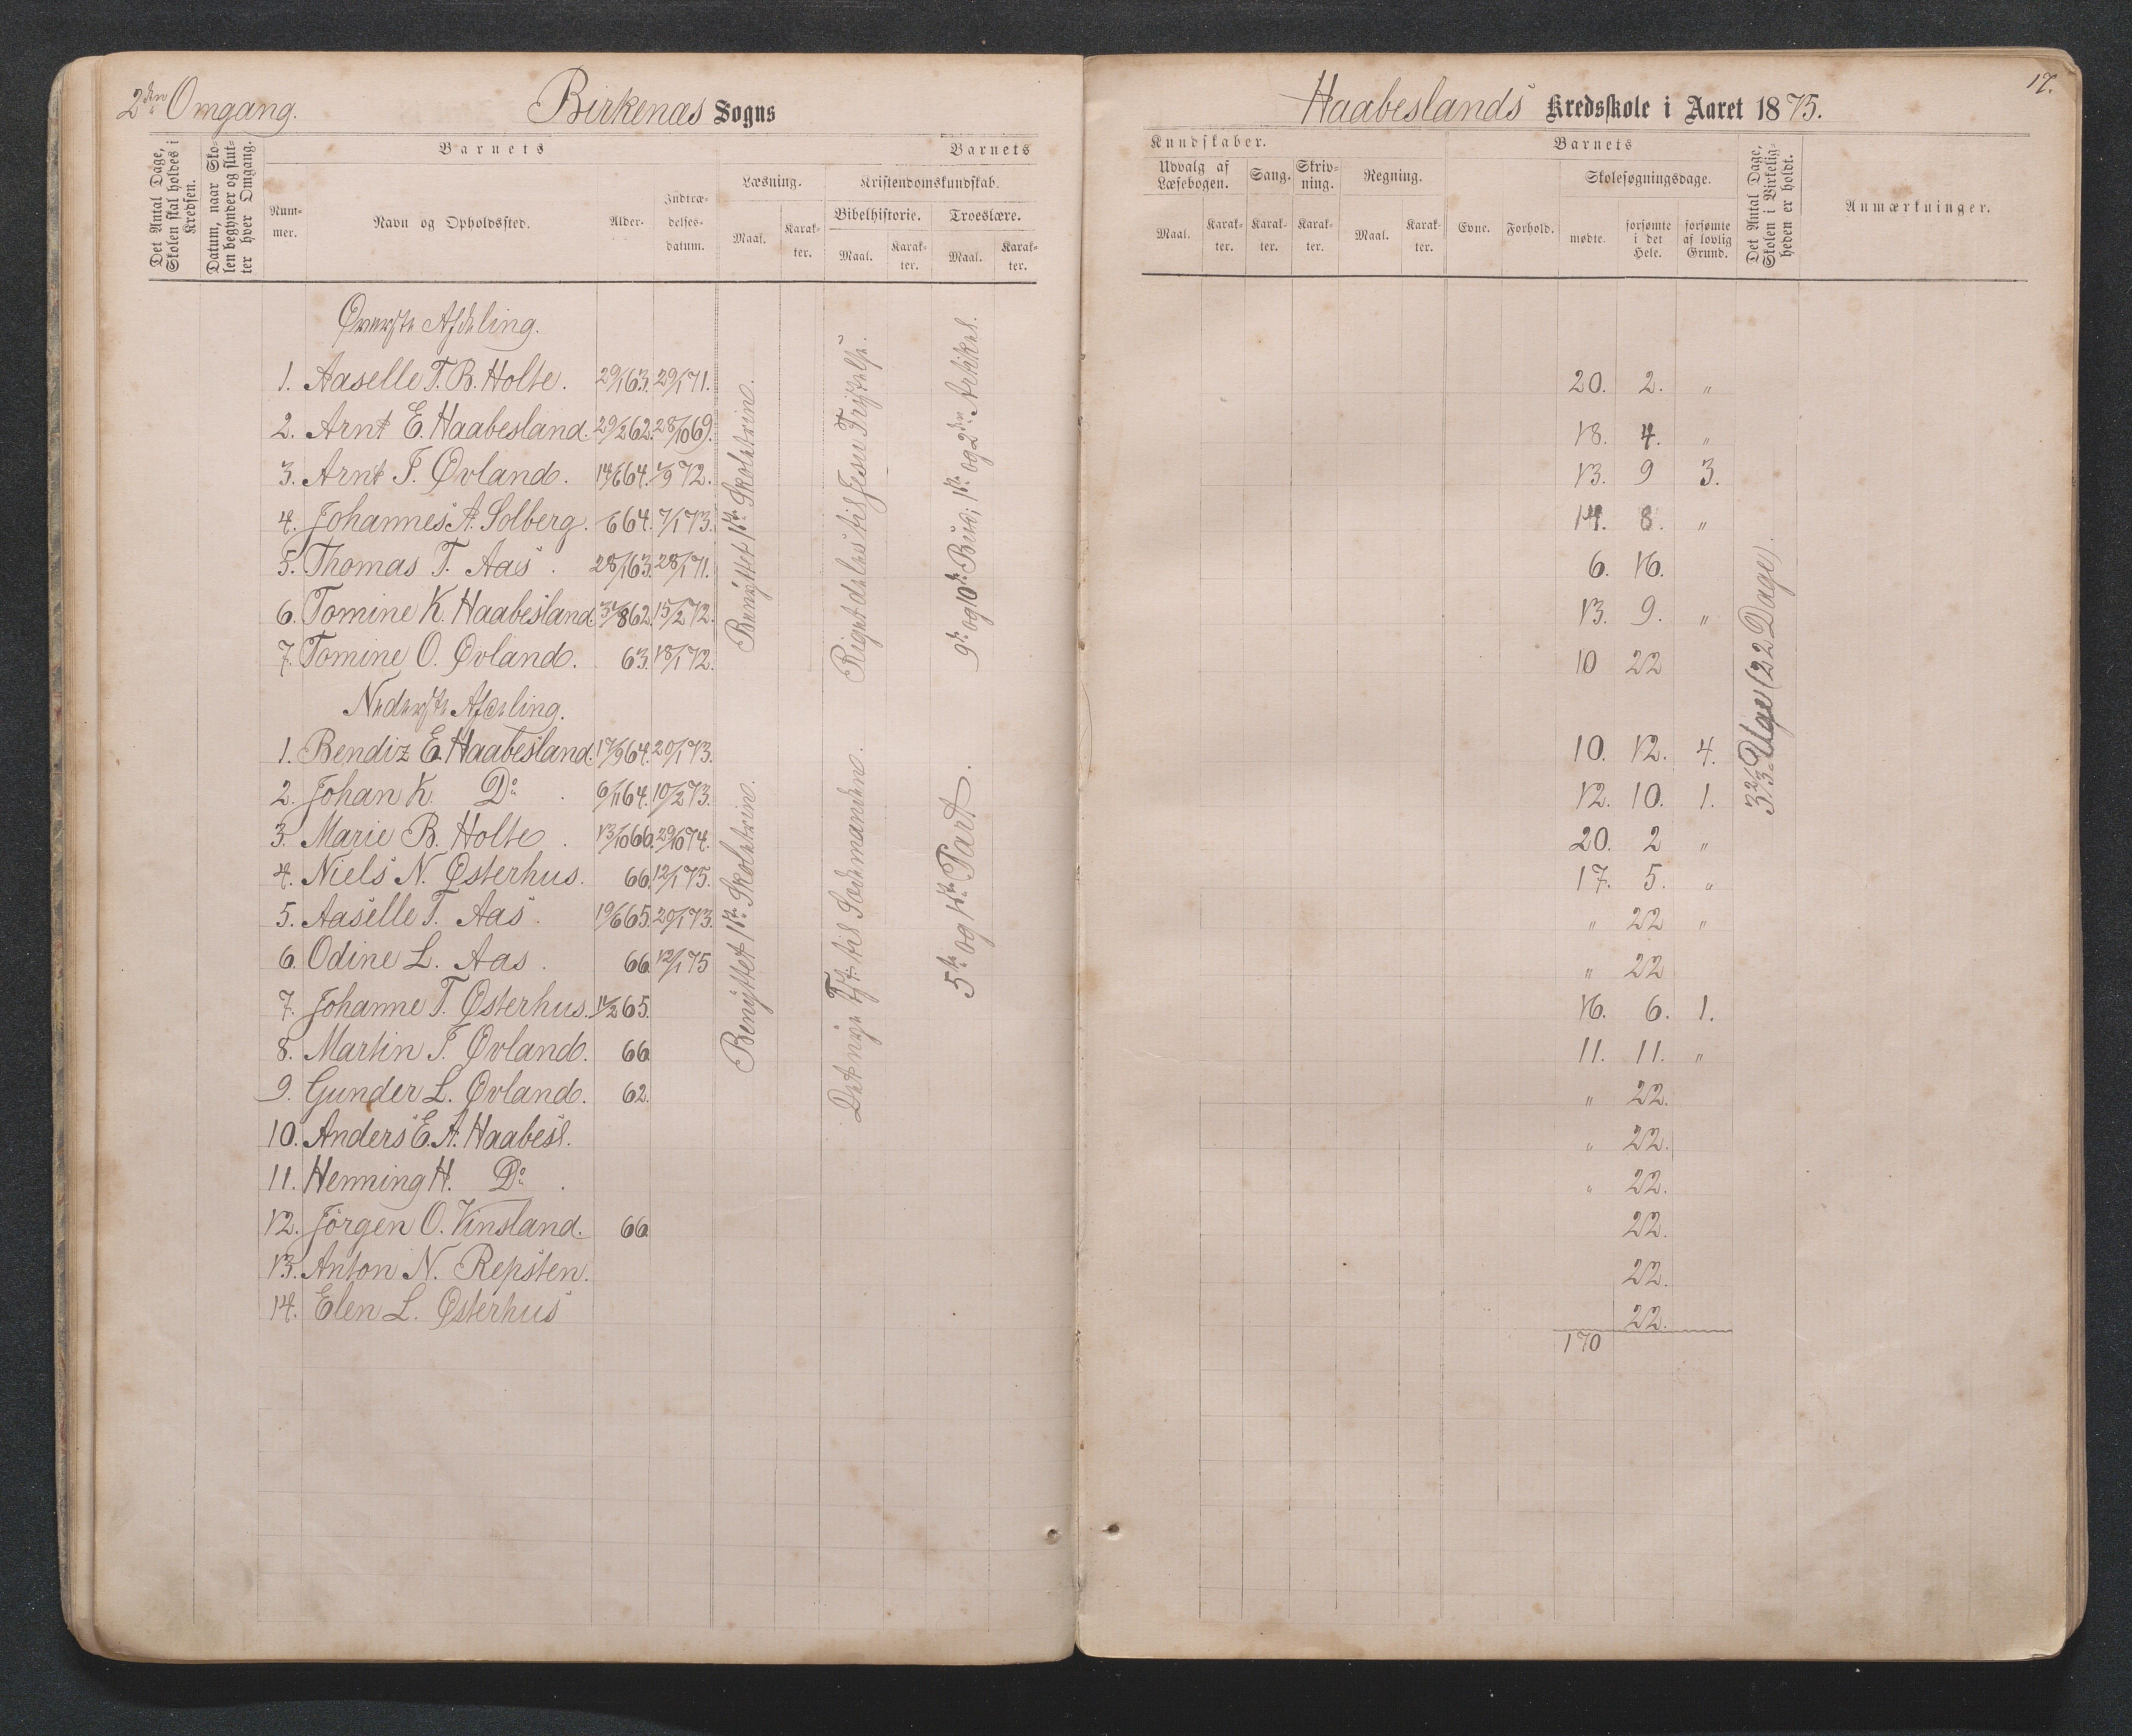 2den Omgang.
Birkenæs Sogns
Det Antal Dage, Skolen skal holdes i Kredsen.
Datum, naar Skolen begynder og slutter hver Omgang.
Barnets
Barnets
Nummer.
Navn og Opholdssted.
Alder.
Indtrædelses-datum.
Læsning.
Kristendomskundskab.
Bibelhistorie.
Troeslære.
Maal.
Karakter.
Maal.
Karakter.
Maal.
Karakter.
Øverste Afdeling.
1. Aaselle T. B. Holte. 29/1 63. 29/1 71.
2. Arnt E. Haabesland. 29/2 62. 28/10 69.
3. Arnt T. Øvland. 14/6 64. 1/9 72.
4. Johannes A. Solberg. 6 64. 7/1 73.
5. Thomas T. Aas. 28/1 63. 28/1 71.
6. Tomine K. Haabesland 31/8 62. 15/2 72.
7. Tomine O. Øvland. 63. 18/1 72.
Benyttet 1ste Skoletrin.
Riget deles til Jesu Fristelse.
9de og 10de Bud; 1ste og 2den Artikel.
Nederste Afdeling.
1. Bendiz E. Haabesland. 17/9 64. 20/1 73.
2. Johan K. Do. 6/11 64. 10/2 73.
3. Marie B. Holte. 13/10 66. 29/10 74.
4. Niels N. Østerhus. 66. 12/1 75.
5. Aaselle T. Aas. 19/6 65. 20/1 73.
6. Odine L. Aas. 66. 12/1 75
7. Johanne T. Østerhus. 11/2 65.
8. Martin T. Øvland. 66
9. Gunder L. Øvland. 62.
10. Anders E. A. Haabesl.
11. Henning H. Do.
12. Jörgen O. Vinsland. 66
13. Anton N. Repsten.
14. Elen L. Østerhus
Benyttet 1ste Skoletrin.
Det nye Tst. til Sædemanden.
5te og 1ste Part.
Haabeslands Kredsskole i Aaret 1875.
17.
Kundskaber.
Barnets
Udvalg af Læsebogen.
Sang.
Skrivning.
Regning.
Skolesøgningsdage.
Det Antal Dage, Skolen i Virkeligheden er holdt.
Anmærkninger.
Maal.
Karakter.
Karakter.
Karakter.
Maal.
Karakter.
Evne.
Forhold.
mødte.
forsømte i det Hele.
forsømte af lovlig Grund.
20. 2. "
18. 4. "
13. 9 3.
14. 8. "
6. 16.
13. 9. "
10 22
10. 12. 4.
12. 10. 1.
20. 2 "
17. 5. "
" 22 "
" 22
16. 6. 1.
11. 11. "
" 22.
" 22.
" 22.
22.
22.
22.
170
3 2/3 Uger (22 Dage).